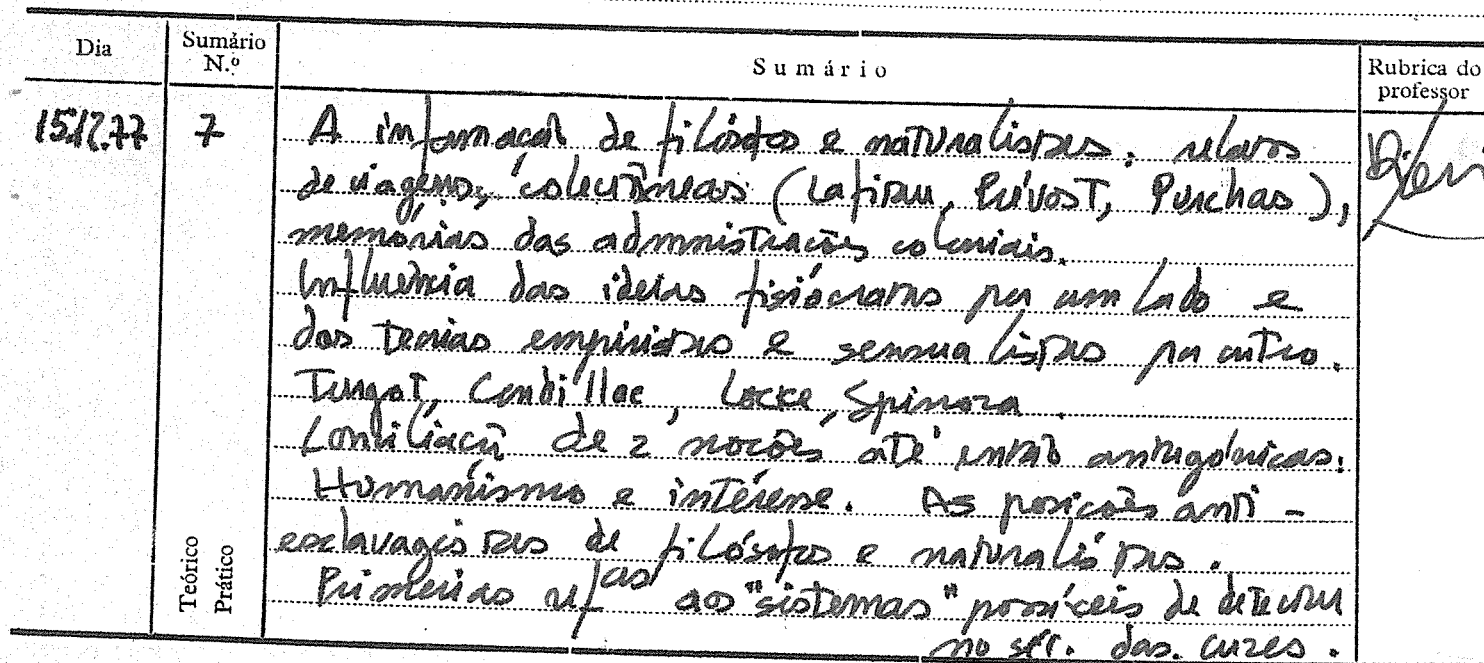 Dia
Sumário N.º
Sumário
Rubrica do professor
15.12.77
7
A informação de filósofos e naturalistas: relatos
de viagens, colectâneas (Lafitau, Prévost, Purchas),
memórias das administrações coloniais.
Influência das ideias fisiócratas por um lado e
das teorias empiristas e sensualistas por outro.
Turgot, Condillac, Locke, Spinoza.
Conciliação de 2 noções até então antagónicas:
Humanismo e intéresse. As posições anti-
esclavagistas de filósofos e naturalistas.
Primeiras refas aos "sistemas" possíveis de detectar
no séc. das luzes.
Teórico
Prático